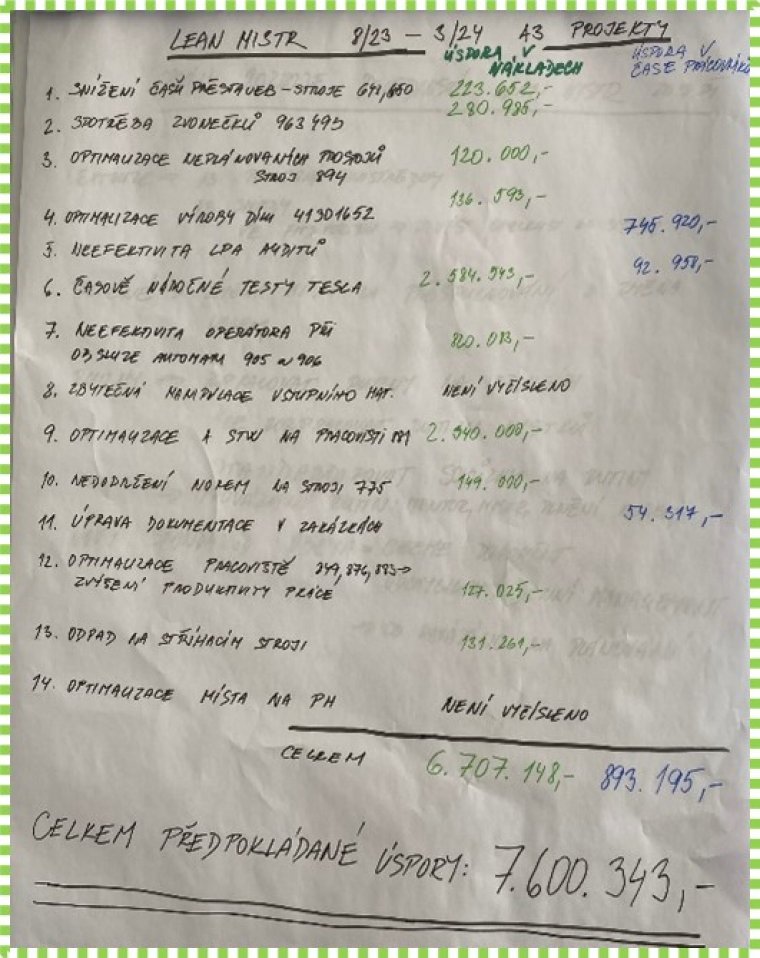 LEAN MISTR 8/23 – 3/24 A3 PROJEKTY
ÚSPORA V NÁKLADECH
ÚSPORA V ČASE PRACOVNÍKŮ
1. SNÍŽENÍ ČASŮ PŘESTAVEB – STROJE 641,650 223.652,-
2. SPOTŘEBA ZVONEČKŮ 963495 280.985,-
3. OPTIMALIZACE NEPLÁNOVANÝCH PROSTOJŮ 120.000,-
STROJ 894
4. OPTIMALIZACE VÝROBY DÍLU 41301652 136.593,-
5. NEEFEKTIVITA LPA AUDITŮ 745.920,-
6. ČASOVĚ NÁROČNÉ TESTY TESLA 2.584.543,- 92.958,-
7. NEEFEKTIVITA OPERÁTORA PŘI
OBSLUZE AUTOMATŮ 905 a 906
8. ZBYTEČNÁ MANIPULACE VSTUPNÍHO MAT. NENÍ VYČÍSLENO
9. OPTIMALIZACE A STW NA PRACOVIŠTI 2.340.000,-
10. NEDODRŽENÍ NOREM NA STROJI 775 149.000,-
11. ÚPRAVA DOKUMENTACE V ZAKÁZKÁCH 54.317,-
12. OPTIMALIZACE PRACOVIŠTĚ
ZVÝŠENÍ PRODUKTIVITY PRÁCE
13. ODPAD NA STŘÍHACÍM STROJI 131.261,-
14. OPTIMALIZACE MÍSTA NA PH NENÍ VYČÍSLENO
CELKEM 6.707.148,- 893.195,-
CELKEM PŘEDPOKLÁDANÉ ÚSPORY: 7.600.343,-